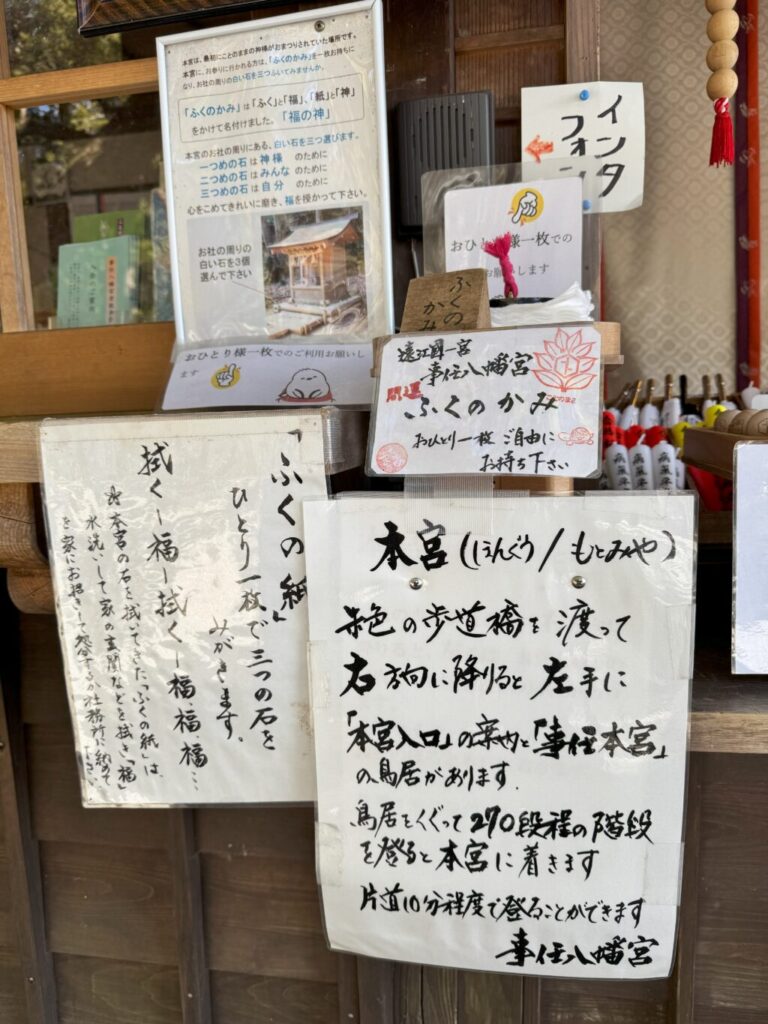 本宮は、最初にことのままの神様がおまつりされていた場所です。
本宮に、お参りに行かれる方は、「ふくのかみ」を一枚お持ちに
なり、お社の周りの白い石を三つふいてみませんか。
「ふくのかみ」は「ふく」と「福」、「紙」と「神」
をかけて名付けました。「福の神」
本宮のお社の周りにある、白い石を三つ選びます。
一つめの石は 神様 のために
二つめの石は みんな のために
三つめの石は 自分 のために
心をこめてきれいに磨き、福を授かって下さい。
お社の周りの
白い石を3個
選んで下さい
おひとり様一枚でのご利用お願いし
ます
インタ
フォン
おひとり様一枚での
お願いします
ふくの
かみ
遠江國一宮
事任八幡宮
開運
ふくのかみ
おひとり一枚 ご自由に
お持ち下さい
「ふくの紙」
ひとり一枚で三つの石を
みがきます。
拭くー福ー拭くー福、福、福…
本宮の石を拭いてきた「ふくの紙」は、
水洗いして家の玄関などを拭き「福」
を家にお招きして処分するか社務所に納めて
下さい。
本宮(ほんぐう/もとみや)
朱色の歩道橋を渡って
右方向に降りると左手に
「本宮入口」の案内と「事任本宮」
の鳥居があります.
鳥居をくぐって270段程の階段
を登ると本宮に着きます
片道10分程度で登ることができます
事任八幡宮